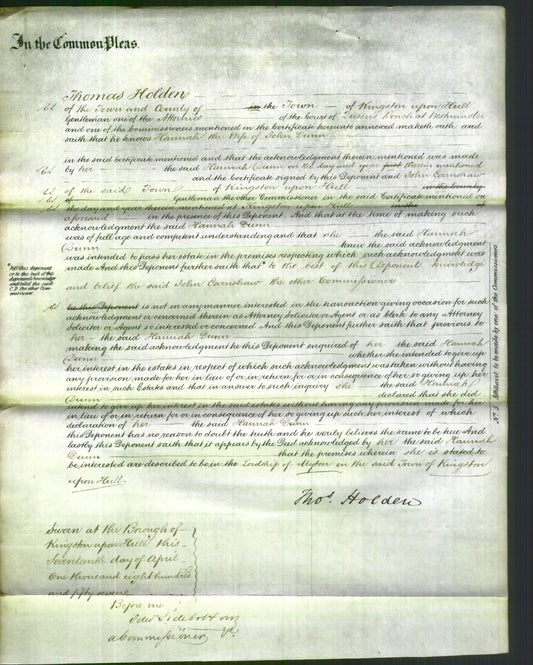 In the Common Pleas.
Thomas Holden
of the Town and County of in the Town of Kingston upon Hull
Gentleman one of the Attornies of the Court of Queens Bench at Westminster
and one of the Commissioners mentioned in the Certificate hereunto annexed maketh oath and
saith that he knows Hannah the Wife of John Dunn
in the said Certificate mentioned and that the acknowledgment therein mentioned was made
by her the said Hannah Dunn on the day and year first therein mentioned
and the Certificate signed by this Deponent and John Earnshaw
of the said Town of Kingston upon Hull in the County
of Gentleman the other Commissioner in the said Certificate mentioned on
the day and year therein mentioned at Kingston upon Hull in the of
aforesaid in the presence of this Deponent And that at the time of making such
acknowledgment the said Hannah Dunn
was of full age and competent understanding and that she the said Hannah
Dunn knew the said acknowledgment
was intended to pass her estate in the premises respecting which such acknowledgment was
made And this Deponent further saith that to the best of this Deponents knowledge
and belief the said John Earnshaw the other Commissioner
he this Deponent is not in any manner interested in the transaction giving occasion for such
acknowledgment or concerned therein as Attorney Solicitor or Agent or as Clerk to any Attorney
Solicitor or Agent so interested or concerned And this Deponent further saith that previous to
her the said Hannah Dunn
making the said acknowledgment he this Deponent enquired of her the said Hannah
Dunn whether she intended to give up
her interest in the estates in respect of which such acknowledgment was taken without having
any provision made for her in lieu of or in return for or in consequence of her so giving up her
interest in such Estates and that in answer to such inquiry she the said Hannah
Dunn declared that she did
intend to give up her interest in the said estates without having any provision made for her
in lieu of or in return for or in consequence of her so giving up such her interest of which
declaration of her the said Hannah Dunn
this Deponent has no reason to doubt the truth and he verily believes the same to be true And
lastly this Deponent saith that it appears by the Deed acknowledged by her the said Hannah
Dunn that the premises wherein she is stated to
be interested are described to be in the Lordship of Myton in the said Town of Kingston
upon Hull.
Thos. Holden
Sworn at the Borough of
Kingston upon Hull this
Seventeenth day of April
One thousand eight hundred
and fifty seven
Before me
Edwd Sidebottom
a Commissioner &c.
No. 5 Affidavit to be made by one of the Commissioners